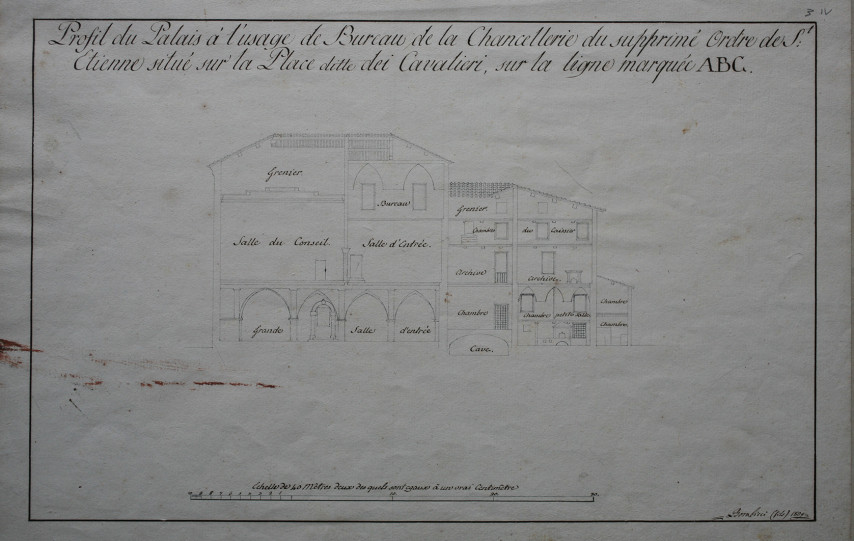 3 IV
Profil du Palais à l'usage de Bureau de la Chancellerie du supprimé Ordre de S.t
Etienne situé sur la Place ditte dei Cavalieri, sur la ligne marquée ABC.
Grenier.
Bureau
Grenier.
Chambre des Cavalier
Salle du Conseil.
Salle d'Entrée.
Archive
Archive.
Chambre
Chambre
Chambre petite Salle
Chambre
Grande Salle d'entrée
Cave.
Echelle de 40 Mètres deux des quels sont egaux à un vrai Centimètre